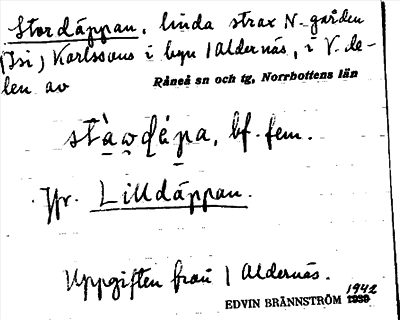 Stordäppan, linda strax N-gården
(Isi) Karlssons i byn Aldernäs, i V. de-
len av
Råneå sn och tg, Norrbottens län
bf. fem.
Jfr. Lilldäppan.
Uppgiften från Aldernäs.
EDVIN BRÄNNSTRÖM 1942